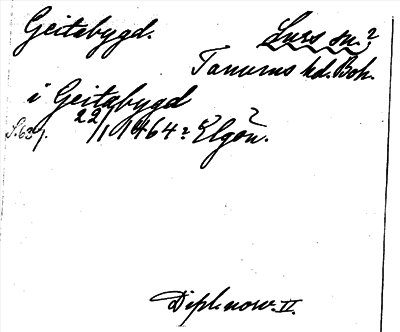 Geitabygd. Lurs sn.?
Tanums hd. Boh.
i Geitabygd
S. 631. 22/1 1464? Elgön.
Dipl. norv. II.